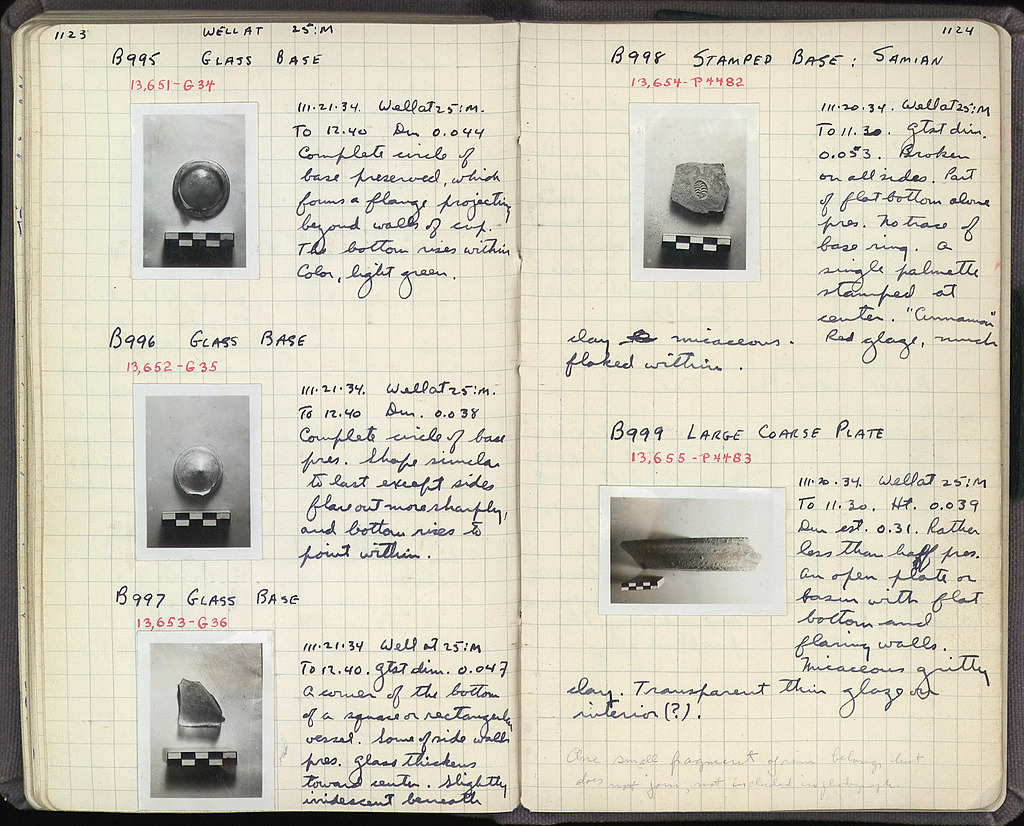 1123 WELL AT 25:M
B995 GLASS BASE
13,651-G34
111.21.34. Well at 25:M.
To 12.40 Dm 0.044
Complete circle of
base preserved, which
forms a flange projecting
beyond walls of cup.
The bottom rises within
Color, light green.
B996 GLASS BASE
13,652-G35
111.21.34. Well at 25:M.
To 12.40 Dm. 0.038
Complete circle of base
pres. Shape similar
to last except sides
flare out more sharply,
and bottom rises to
point within.
B997 GLASS BASE
13,653-G36
111.21.34 Well at 25:M
To 12.40. Gtst dim. 0.047
A corner of the bottom
of a square or rectangular
vessel. Some of side walls
pres. Glass thickens
toward center. Slightly
iridescent beneath
1124
B998 STAMPED BASE: SAMIAN
13,654-P4482
111.20.34. Well at 25:M
To 11.30. Gtst dim.
0.053. Broken
on all sides. Part
of flat bottom alone
pres. No trace of
base ring. A
single palmette
stamped at
center. "Cinnamon"
clay micaceous. Red glaze, much
flaked within.
B999 LARGE COARSE PLATE
13,655-P4483
111.20.34. Well at 25:M
To 11.30. Ht. 0.039
Dm est. 0.31. Rather
less than half pres.
An open plate or
basin with flat
bottom and
flaring walls.
Micaceous gritty
clay. Transparent thin glaze on
interior (?).
One small fragment of rim belongs but
does not join, not included in photograph